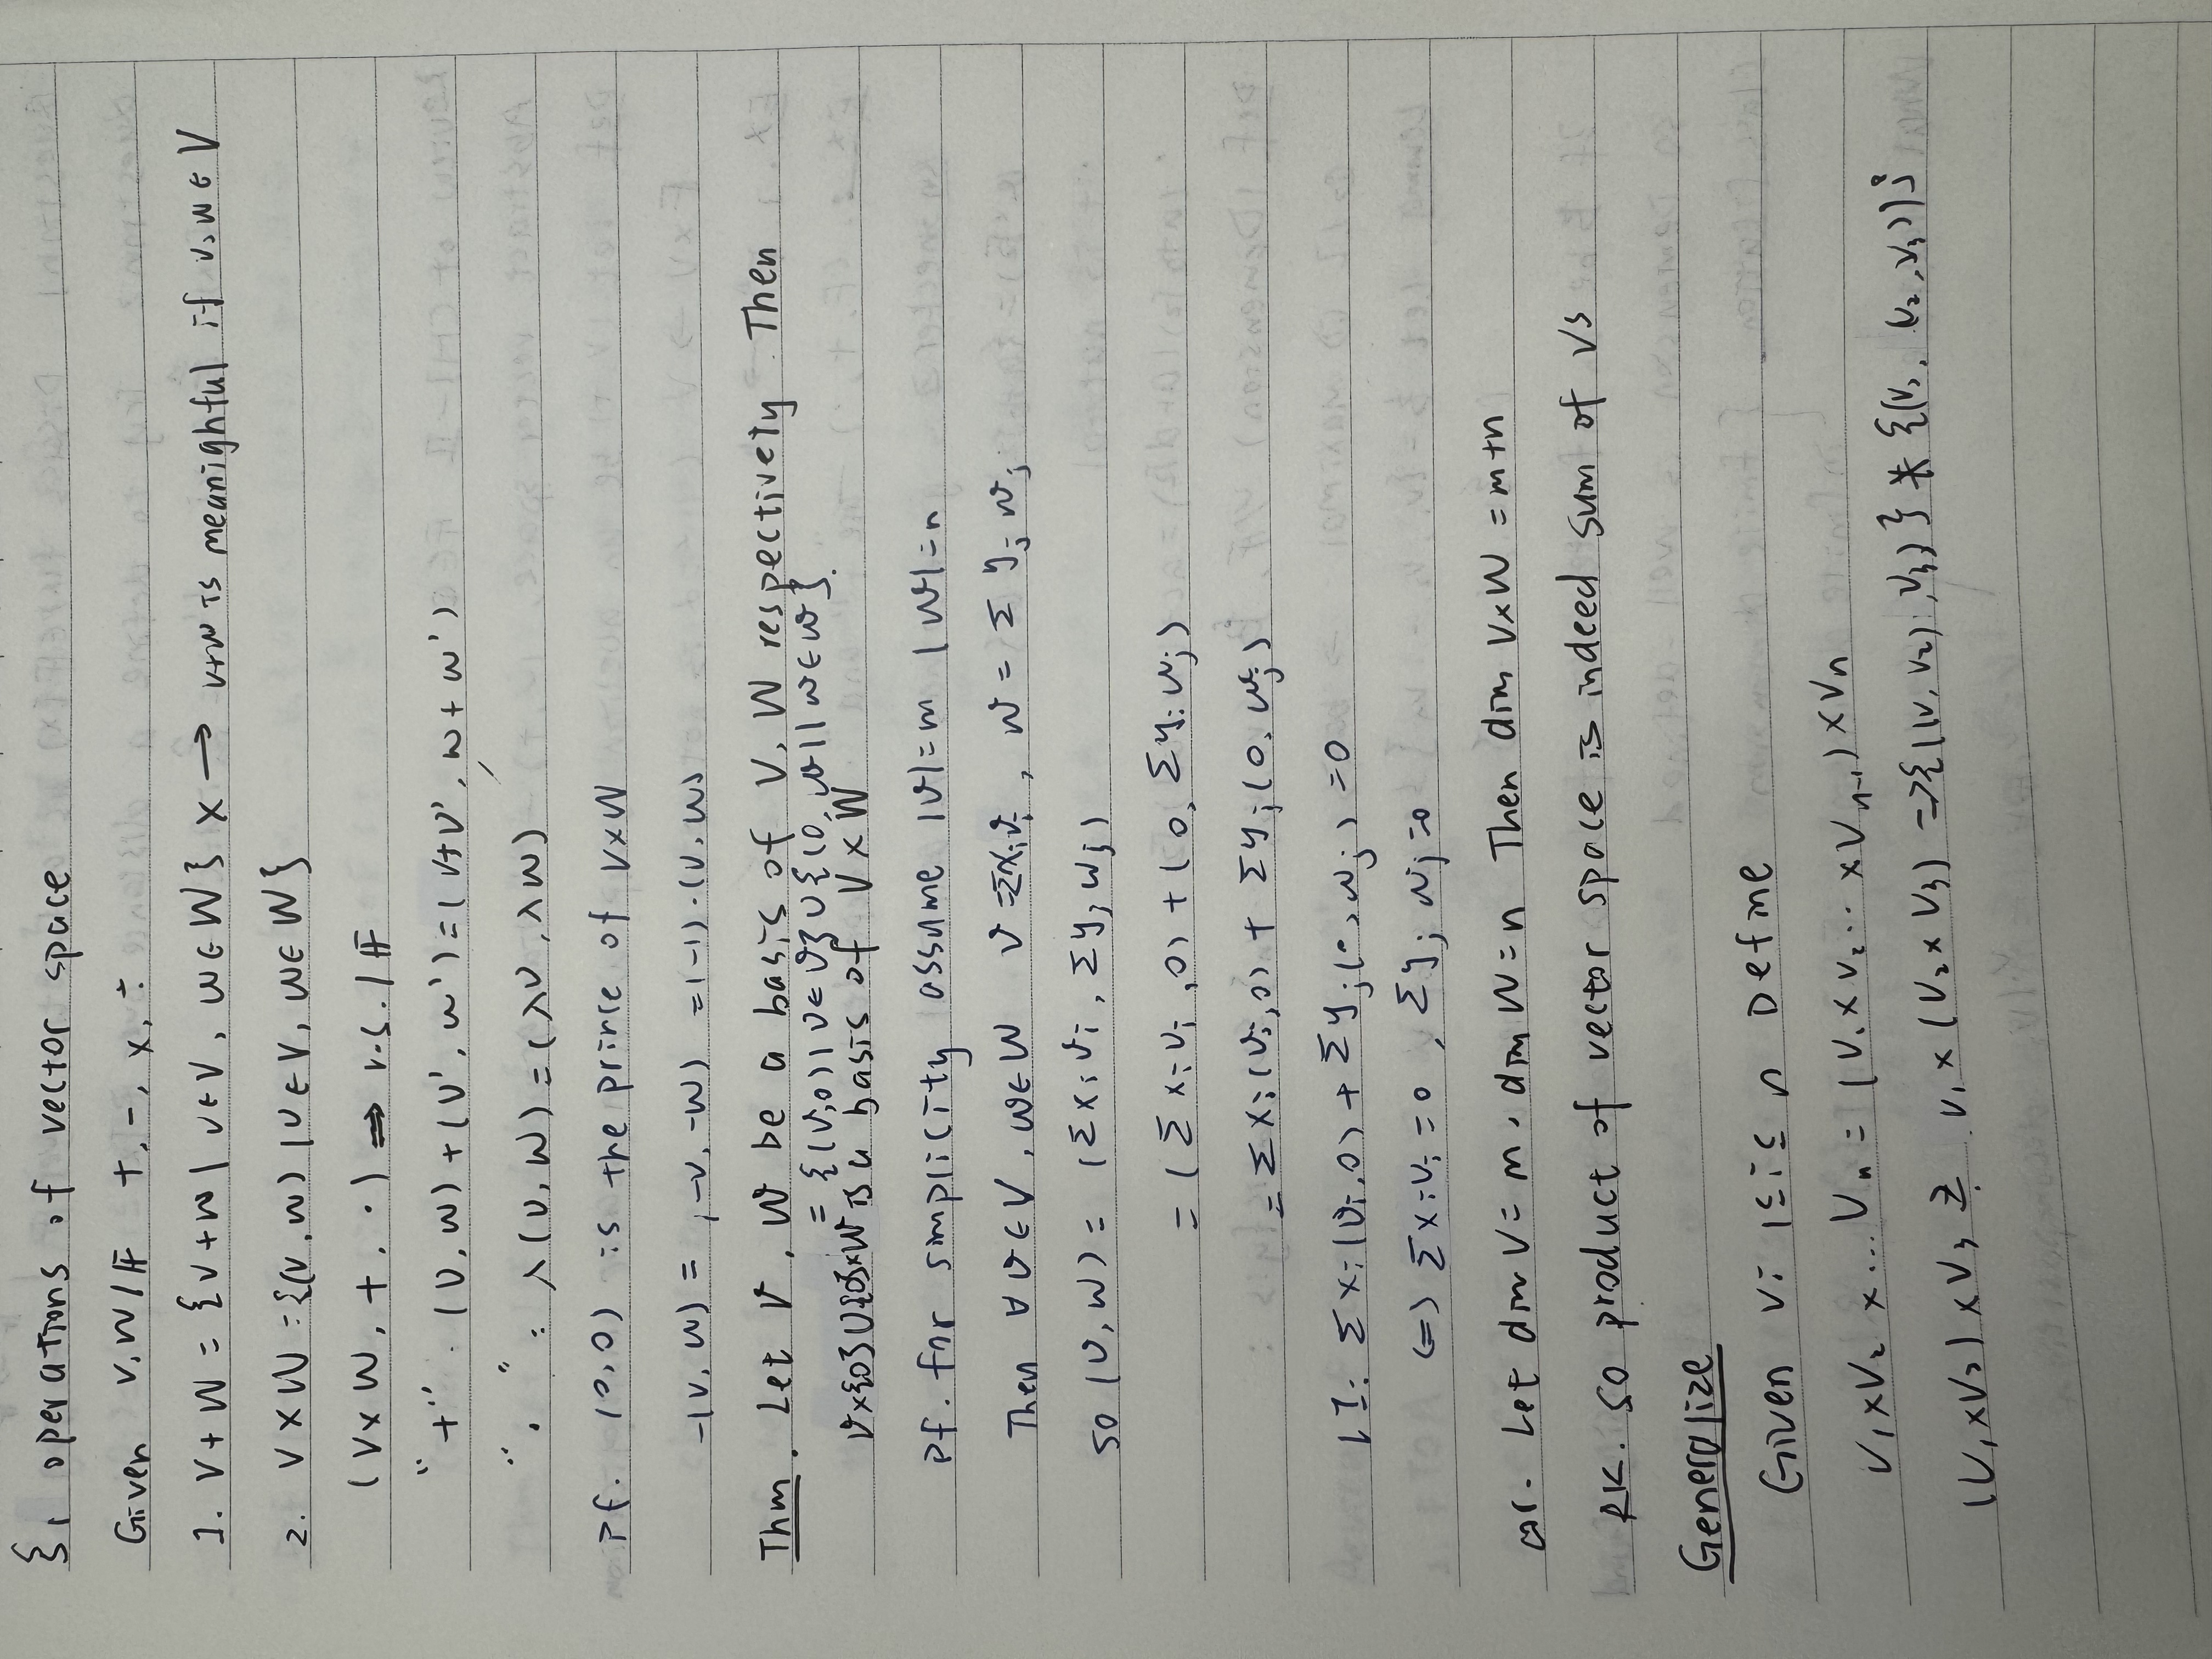 §1 operations of vector space
Given V, W / 𝔽 +, -, ×, ÷
1. V + W = {v+w | v∈V, w∈W} × → v+w is meanighful if v, w ∈ V
2. V × W = {(v, w) | v∈V, w∈W}
(V×W, +, ·) ⇒ v.s. / 𝔽
"+" . (v, w) + (v', w') = (v+v', w+w')
"·" : λ(v, w) = (λv, λw)
Pf. (0,0) is the prince of V×W
-(v, w) = (-v, -w) = (-1)·(v, w)
Thm. Let 𝒱, 𝒲 be a basis of V, W respectively Then
= {(v,0) | v∈𝒱} ∪ {(0, w) | w∈𝒲}.
𝒱×{0}∪{0}×𝒲 is a basis of V × W
Pf. for simplicity assume |𝒱|=m |𝒲|=n
Then ∀ v∈V, w∈W v = Σxᵢvᵢ, w = Σ yⱼ wⱼ
so (v, w) = (Σxᵢvᵢ, Σyⱼwⱼ)
= (Σ xᵢvᵢ, 0) + (0, Σyⱼwⱼ)
= Σxᵢ(vᵢ,0) + Σyⱼ(0, wⱼ)
LI: Σxᵢ(vᵢ,0) + Σyⱼ(0, wⱼ) = 0
(=) Σxᵢvᵢ = 0, Σyⱼ wⱼ = 0
cor. Let dim V = m, dim W = n Then dim V×W = m+n
RK. so product of vector space is indeed sum of VS
Generalize
Given Vᵢ 1≤i≤n Define
V₁×V₂ × ... Vₙ = (V₁×V₂.. ×Vₙ₋₁) × Vₙ
(V₁×V₂)×V₃ V₁×(V₂×V₃) => {((v₁, v₂), v₃)} {(v₁, (v₂, v₃))}